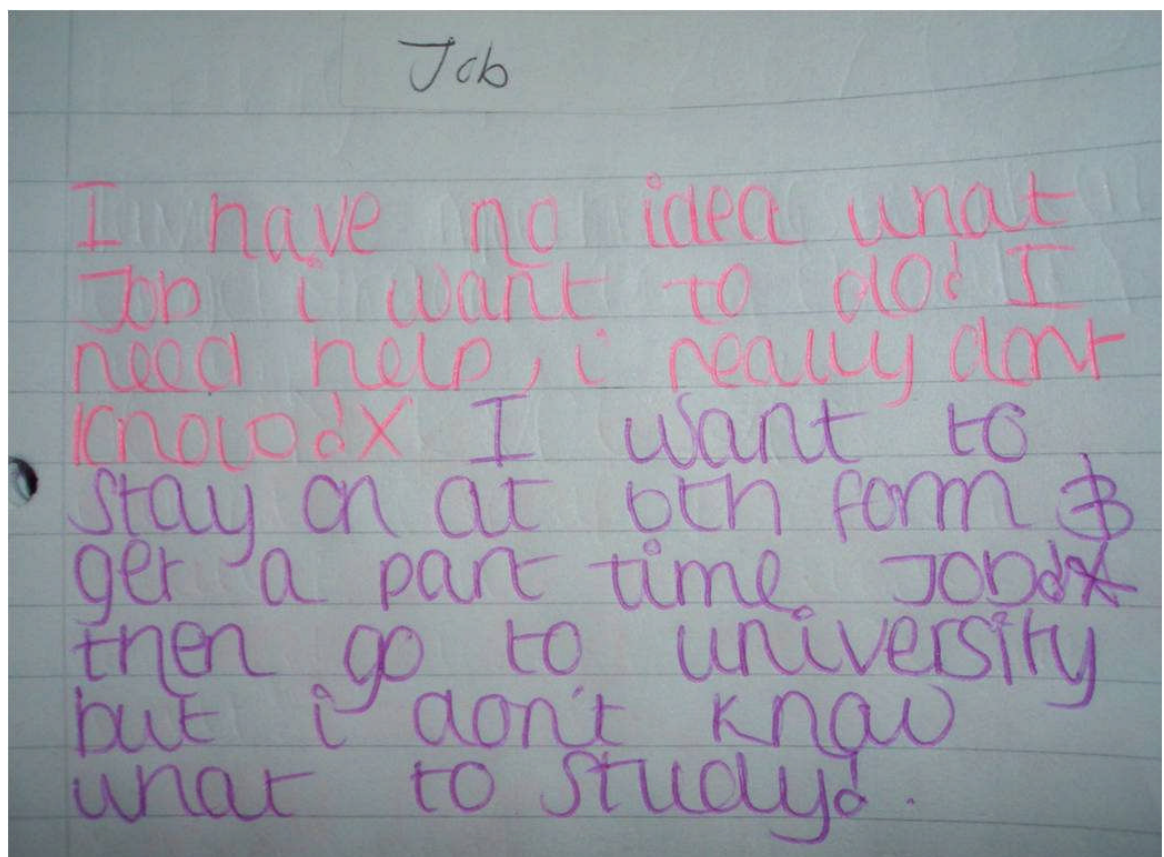 Job
I have no idea what
Job i want to do! I
need help, i really dont
know!X I want to
stay on at 6th form &
get a part time Job!X
then go to university
but i don't know
what to study!.